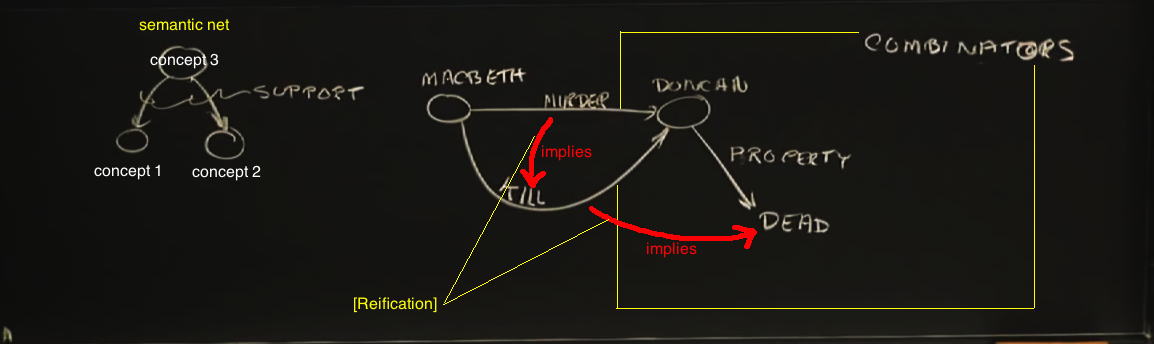 semantic net
concept 3
SUPPORT
concept 1
concept 2
MACBETH
MURDER
DUNCAN
COMBINATORS
implies
KILL
PROPERTY
DEAD
implies
[Reification]